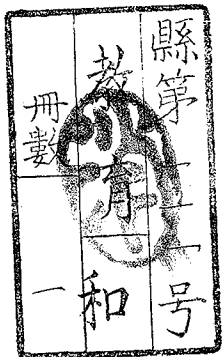 縣第一二一号
教育 和
冊數 一